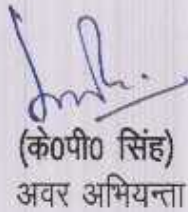 (के0पी0 सिंह)
अवर अभियन्ता